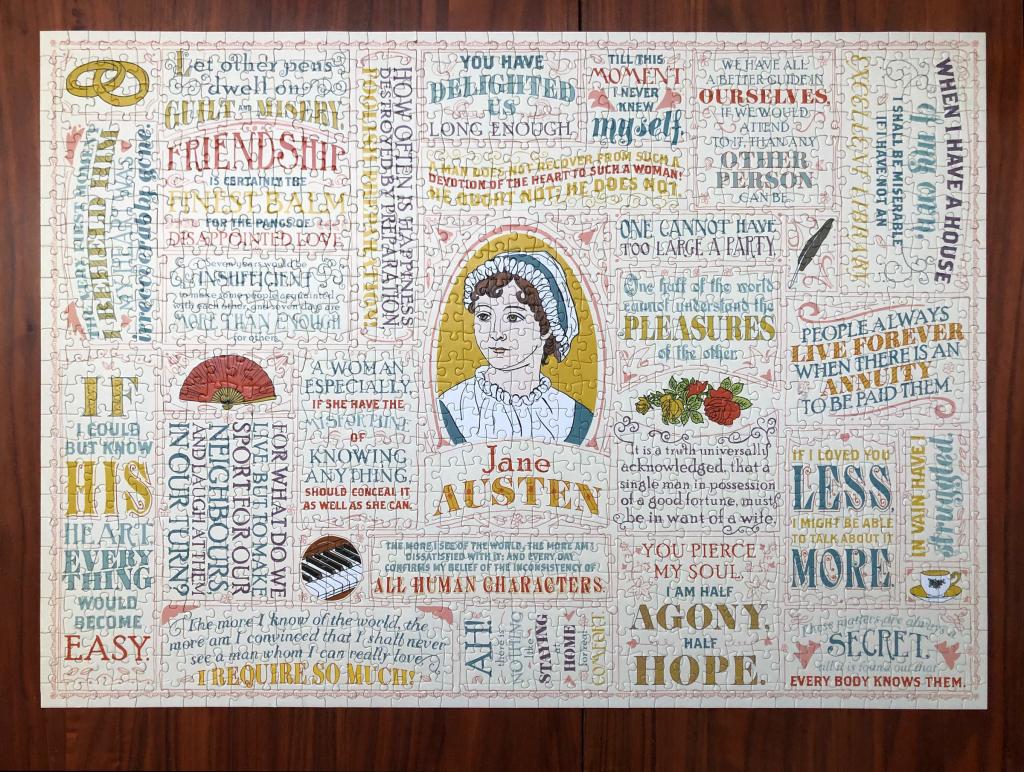 Let other pens
dwell on
GUILT AND MISERY
FRIENDSHIP
IS CERTAINLY THE
FINEST BALM
FOR THE PANGS OF
DISAPPOINTED LOVE.
Seven years would be
INSUFFICIENT
to make some people acquainted
with each other, and seven days are
MORE THAN ENOUGH
for others.
THE VERY FIRST MOMENT
I BEHELD HIM
MY HEART WAS
irrevocably gone.
HOW OFTEN IS HAPPINESS
DESTROYED BY PREPARATION,
FOOLISH PREPARATION!
YOU HAVE
DELIGHTED
US
LONG ENOUGH.
TILL THIS
MOMENT
I NEVER
KNEW
myself.
WE HAVE ALL
A BETTER GUIDE IN
OURSELVES,
IF WE WOULD
ATTEND
TO IT, THAN ANY
OTHER
PERSON
CAN BE.
WHEN I HAVE A HOUSE
of my own,
I SHALL BE MISERABLE
IF I HAVE NOT AN
EXCELLENT LIBRARY.
A MAN DOES NOT RECOVER FROM SUCH A
DEVOTION OF THE HEART TO SUCH A WOMAN!
HE OUGHT NOT; HE DOES NOT.
ONE CANNOT HAVE
TOO LARGE A PARTY.
One half of the world
cannot understand the
PLEASURES
of the other.
PEOPLE ALWAYS
LIVE FOREVER
WHEN THERE IS AN
ANNUITY
TO BE PAID THEM.
IF
I COULD
BUT KNOW
HIS
HEART,
EVERY
THING
WOULD
BECOME
EASY.
FOR WHAT DO WE
LIVE, BUT TO MAKE
SPORT FOR OUR
NEIGHBOURS
AND LAUGH AT THEM
IN OUR TURN?
A WOMAN
ESPECIALLY,
IF SHE HAVE THE
MISFORTUNE
OF
KNOWING
ANYTHING,
SHOULD CONCEAL IT
AS WELL AS SHE CAN.
Jane
AUSTEN
It is a truth universally
acknowledged, that a
single man in possession
of a good fortune, must
be in want of a wife.
IF I LOVED YOU
LESS,
I MIGHT BE ABLE
TO TALK ABOUT IT
MORE
IN VAIN HAVE I
struggled
THE MORE I SEE OF THE WORLD, THE MORE AM I
DISSATISFIED WITH IT; AND EVERY DAY
CONFIRMS MY BELIEF OF THE INCONSISTENCY OF
ALL HUMAN CHARACTERS.
YOU PIERCE
MY SOUL.
I AM HALF
AGONY,
HALF
HOPE.
The more I know of the world, the
more am I convinced that I shall never
see a man whom I can really love.
I REQUIRE SO MUCH!
AH!
there is
NOTHING
like
STAYING
at
HOME
for real
COMFORT
These matters are always a
SECRET,
till it is found out that
EVERY BODY KNOWS THEM.